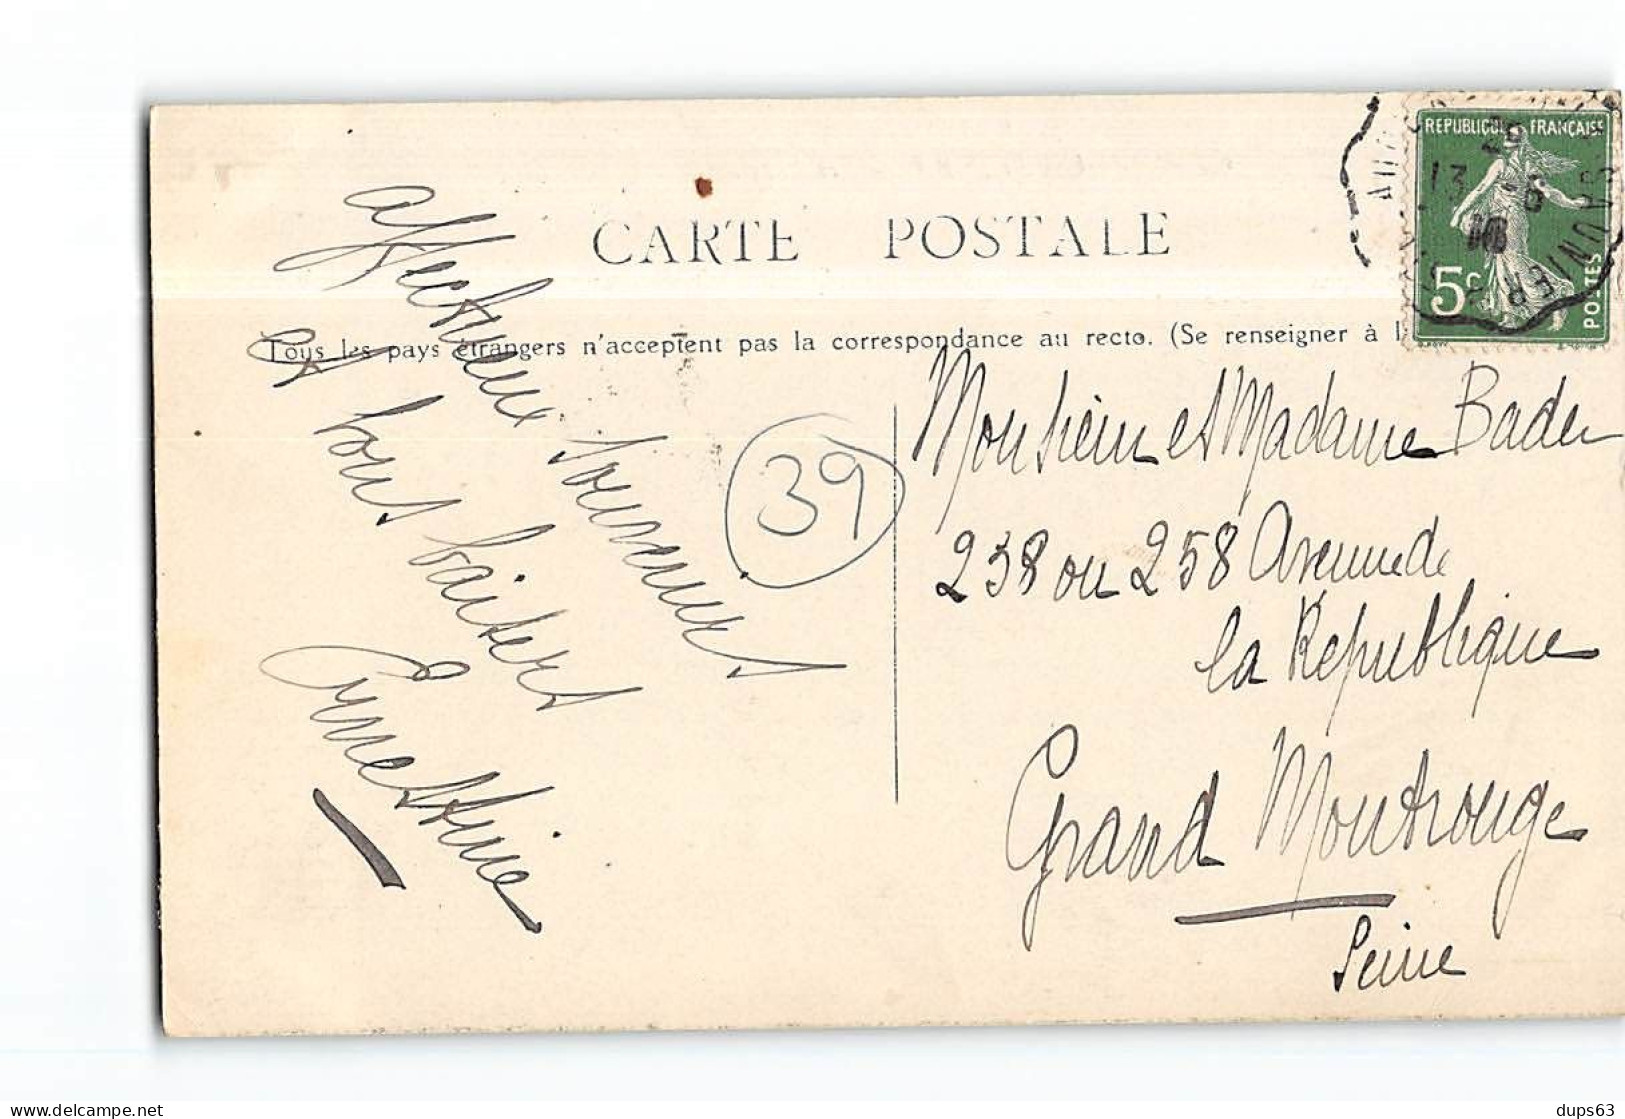 CARTE POSTALE
Tous les pays étrangers n'acceptent pas la correspondance au recto. (Se renseigner à l
REPUBLIQUE FRANÇAISE
5c
POSTES
13
affectueux souvenirs
et bons baisers
Ernestine
39
Monsieur et Madame Bader
238 ou 258 Avenue de
la République
Grand Montrouge
Seine
delcampe.net
dups63